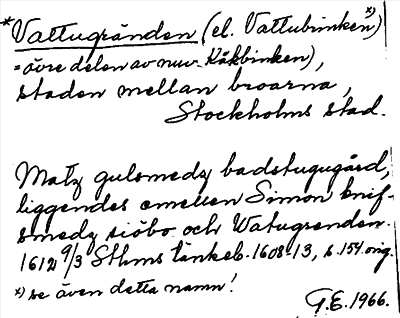 *Vattugränden (el. Vattubrinken x))
= övre delen av nuv. Kåkbrinken),
staden mellan broarna,
Stockholms stad.
Matz gulsmedz badstugugård,
liggendes emellen Simon knif-
smedz siöbo och Watugrenden.
1612 9/3 Sthms tänkeb. 1608-13, s. 154 orig.
x) se även detta namn!
G.E. 1966.